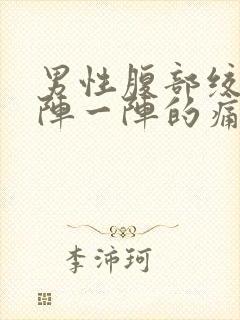 男性腹部绞
陣一陣的痛
李沛珂